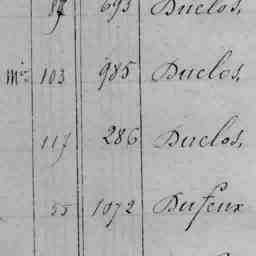 87 693 Duclos,
Mor 103 985 Duclos,
117 286 Duclos,
55 1072 Dufeux